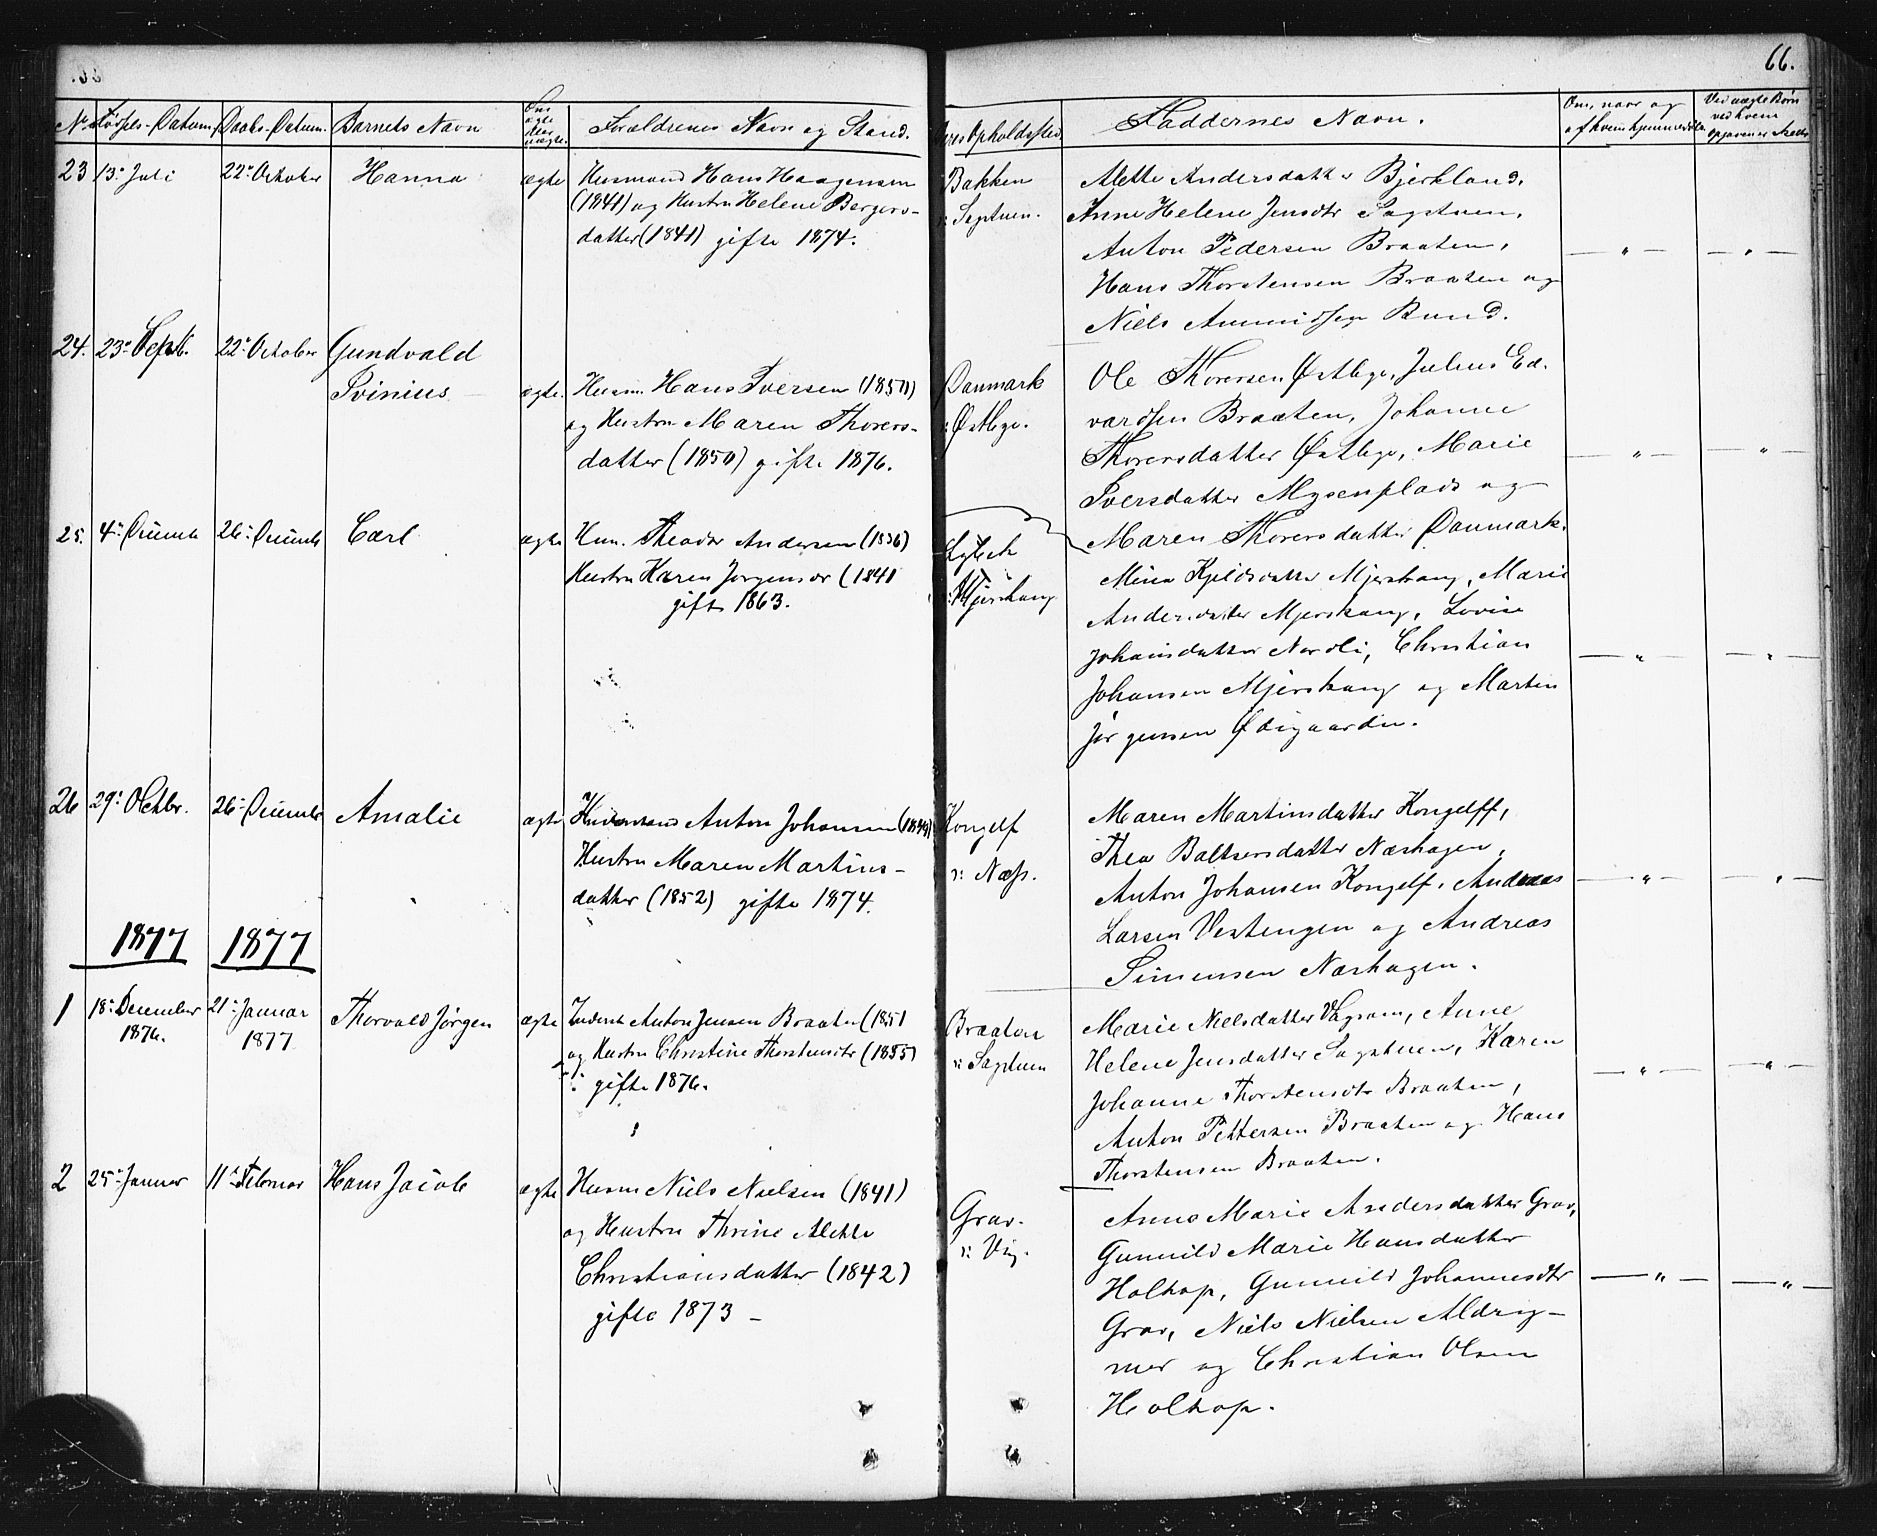 66.
No Fødsels-Datum Daabs-Datum. Barnets Navn Om ægte eller uægte. Forældrenes Navn og Stand. Deres Opholdssted Faddernes Navn. Om, naar og af hvem hjemmedøbt. Ved uægte Børn ved hvem Opgaven er skeet
23 13de Juli 22de October Hanna ægte Husmand Hans Haagensen
(1841) og Hustru Helene Bergers-
datter (1841) gifte 1874.
Bakken
v: Sagstuen.
Alette Andersdatter Bjerkland,
Anne Helene Jensdtr Sagstuen,
Anton Pedersen Braaten,
Hans Thorstensen Braaten og
Niels Amundsen Rund.
— " — — " —
24. 23de Sept. 22de October Gundvald
Ivinius ægte. Husm. Hans Iversen (1850)
og Hustru Maren Thorers-
datter (1850) gifte 1876.
Danmark
v: Østbye.
Ole Thorersen Østbye, Julius Ed-
vardsen Braaten, Johanne
Thorersdatter Østbye, Marie
Iversdatter Mysenplads og
Maren Thorersdatter Danmark.
— " — — " —
25. 4de Decemb 26de Decemb Carl ægte Hum. Theodor Andersen (1836)
Hustru Karen Jørgensdr (1841
gifte 1863.
Lybeck
v: Mjerskaug
Mina Kjeldsdatter Mjerskaug, Marie
Andersdatter Mjerskaug, Lovise
Johansdatter Nordli, Christian
Johansen Mjerskaug og Martin
Jørgensen Ødegaarden.
— " — — " —
26 29de Octbr. 26de Decembr Amalie ægte Anton Johansen (1849)
Hustru Maren Martins-
datter (1852) gifte 1874.
Kongelf
v: Næss.
Maren Martinsdatter Kongelff,
Thea Baltsersdatter Næshagen,
Anton Johansen Kongelf, Andreas
Larsen Vestengen og Andreas
Simensen Næshagen.
— " — — " —
1877 1877
1 18de December
1876. 21de Januar
1877 Thorvald Jørgen ægte Inderst Anton Jensen Braaten (1851
og Hustru Christine Thorstensdtr (1855)
gifte 1876.
Braaten
v: Sagstuen
Marie Nielsdatter Anne
Helene Jensdatter Sagstuen, Karen
Johanne Thorstensdtr Braaten,
Anton Pettersen Braaten og Hans
Thorstensen Braaten.
— " — — " —
2 25de Januar 11de Februar Hans Jacob ægte Husm Niels Nielsen (1841)
og Hustru Thrine Alette
Christiansdatter (1842)
gifte 1873 –
Grav.
v: Vig.
Anne Marie Andersdatter Grav,
Gunnild Marie Hansdatter
Holtop, Gunnild Johannesdtr
Grav, Niels Nielsen Aldrig-
mer og Christian Olsen
Holtop.
— " — — " —